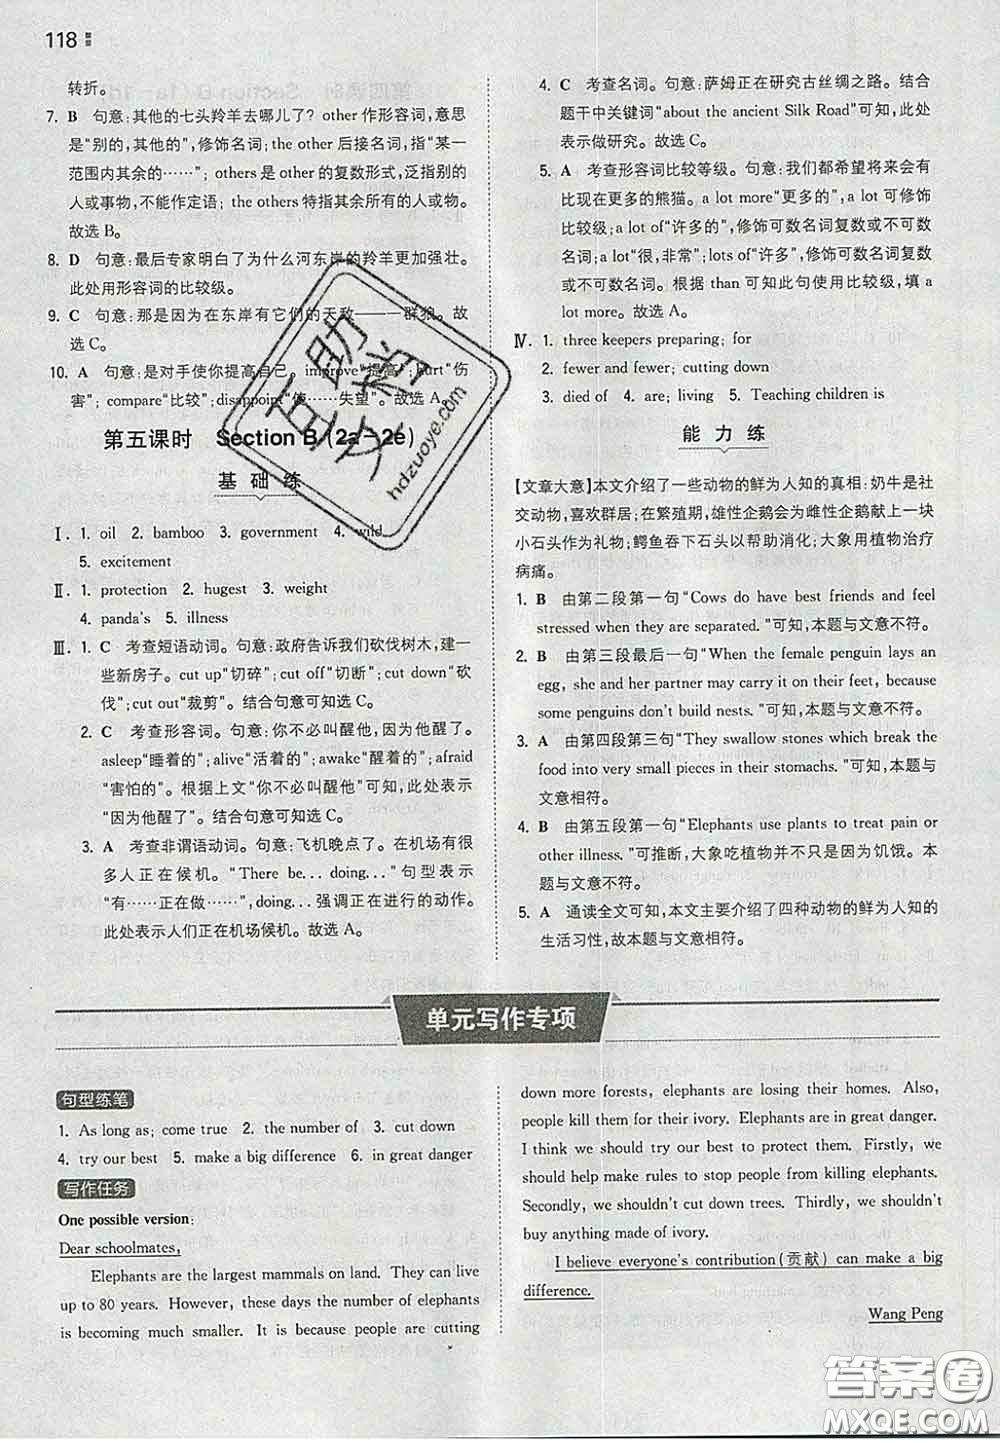 118
转折。
7. B 句意：其他的七头羚羊去哪儿了？other 作形容词，意思
是“别的，其他的”，修饰名词；the other 后接名词，指“某一
范围内其余的……”；others 是 other 的复数形式，泛指别的
人或事物，不能作定语；the others 特指其余所有的人或物。
故选 B。
8. D 句意：最后专家明白了为什么河东岸的羚羊更加强壮。
此处用形容词的比较级。
9. C 句意：那是因为在东岸有它们的天敌———一群狼。故
选 C。
10. A 句意：是对手使你提高自己。improve“提高”；hurt“伤
害”；compare“比较”；disappoint“使……失望”。故选 A。
第五课时 Section B (2a－2e)
基 础 练
Ⅰ. 1. oil 2. bamboo 3. government 4. wild
5. excitement
Ⅱ. 1. protection 2. hugest 3. weight
4. panda's 5. illness
Ⅲ. 1. C 考查短语动词。句意：政府告诉我们砍伐树木，建一
些新房子。cut up“切碎”；cut off“切断”；cut down“砍
伐”；cut out“裁剪”。结合句意可知选 C。
2. C 考查形容词。句意：你不必叫醒他，因为他醒了。
asleep“睡着的”；alive“活着的”；awake“醒着的”；afraid
“害怕的”。根据上文“你不必叫醒他”可知，此处表示
“因为他醒了”。结合句意可知选 C。
3. A 考查非谓语动词。句意：飞机晚点了。在机场有很
多人正在候机。“There be... doing...”句型表示
“有……正在做……”，doing... 强调正在进行的动作。
此处表示人们正在机场候机。故选 A。
4. C 考查名词。句意：萨姆正在研究古丝绸之路。结合
题干中关键词“about the ancient Silk Road”可知，此处
表示做研究。故选 C。
5. A 考查形容词比较等级。句意：我们都希望将来会有
比现在更多的熊猫。a lot more“更多的”，a lot 可修饰
比较级；a lot of“许多的”，修饰可数名词复数或不可数
名词；a lot“很，非常”；lots of“许多”，修饰可数名词复数
或不可数名词。根据 than 可知此句使用比较级，填 a
lot more。故选 A。
Ⅳ. 1. three keepers preparing; for
2. fewer and fewer; cutting down
3. died of 4. are; living 5. Teaching children is
能 力 练
【文章大意】本文介绍了一些动物的鲜为人知的真相：奶牛是社
交动物，喜欢群居；在繁殖期，雄性企鹅会为雌性企鹅献上一块
小石头作为礼物；鳄鱼吞下石头以帮助消化；大象用植物治疗
病痛。
1. B 由第二段第一句“Cows do have best friends and feel
stressed when they are separated. ”可知，本题与文意不符。
2. B 由第三段最后一句“When the female penguin lays an
egg, she and her partner may carry it on their feet, because
some penguins don't build nests. ”可知，本题与文意不符。
3. A 由第四段第三句“They swallow stones which break the
food into very small pieces in their stomachs. ”可知，本题与
文意相符。
4. B 由第五段第一句“Elephants use plants to treat pain or
other illness. ”可推断，大象吃植物并不只是因为饥饿。本
题与文意不符。
5. A 通读全文可知，本文主要介绍了四种动物的鲜为人知的
生活习性，故本题与文意相符。
单元写作专项
句型练笔
1. As long as; come true 2. the number of 3. cut down
4. try our best 5. make a big difference 6. in great danger
写作任务
One possible version:
Dear schoolmates,
Elephants are the largest mammals on land. They can live
up to 80 years. However, these days the number of elephants
is becoming much smaller. It is because people are cutting
down more forests, elephants are losing their homes. Also,
people kill them for their ivory. Elephants are in great danger.
I think we should try our best to protect them. Firstly, we
should help make rules to stop people from killing elephants.
Secondly, we shouldn't cut down trees. Thirdly, we shouldn't
buy anything made of ivory.
I believe everyone's contribution(贡献) can make a big
difference.
Wang Peng
互助文档
hdzuoye.com
答案圈
MXQE.COM